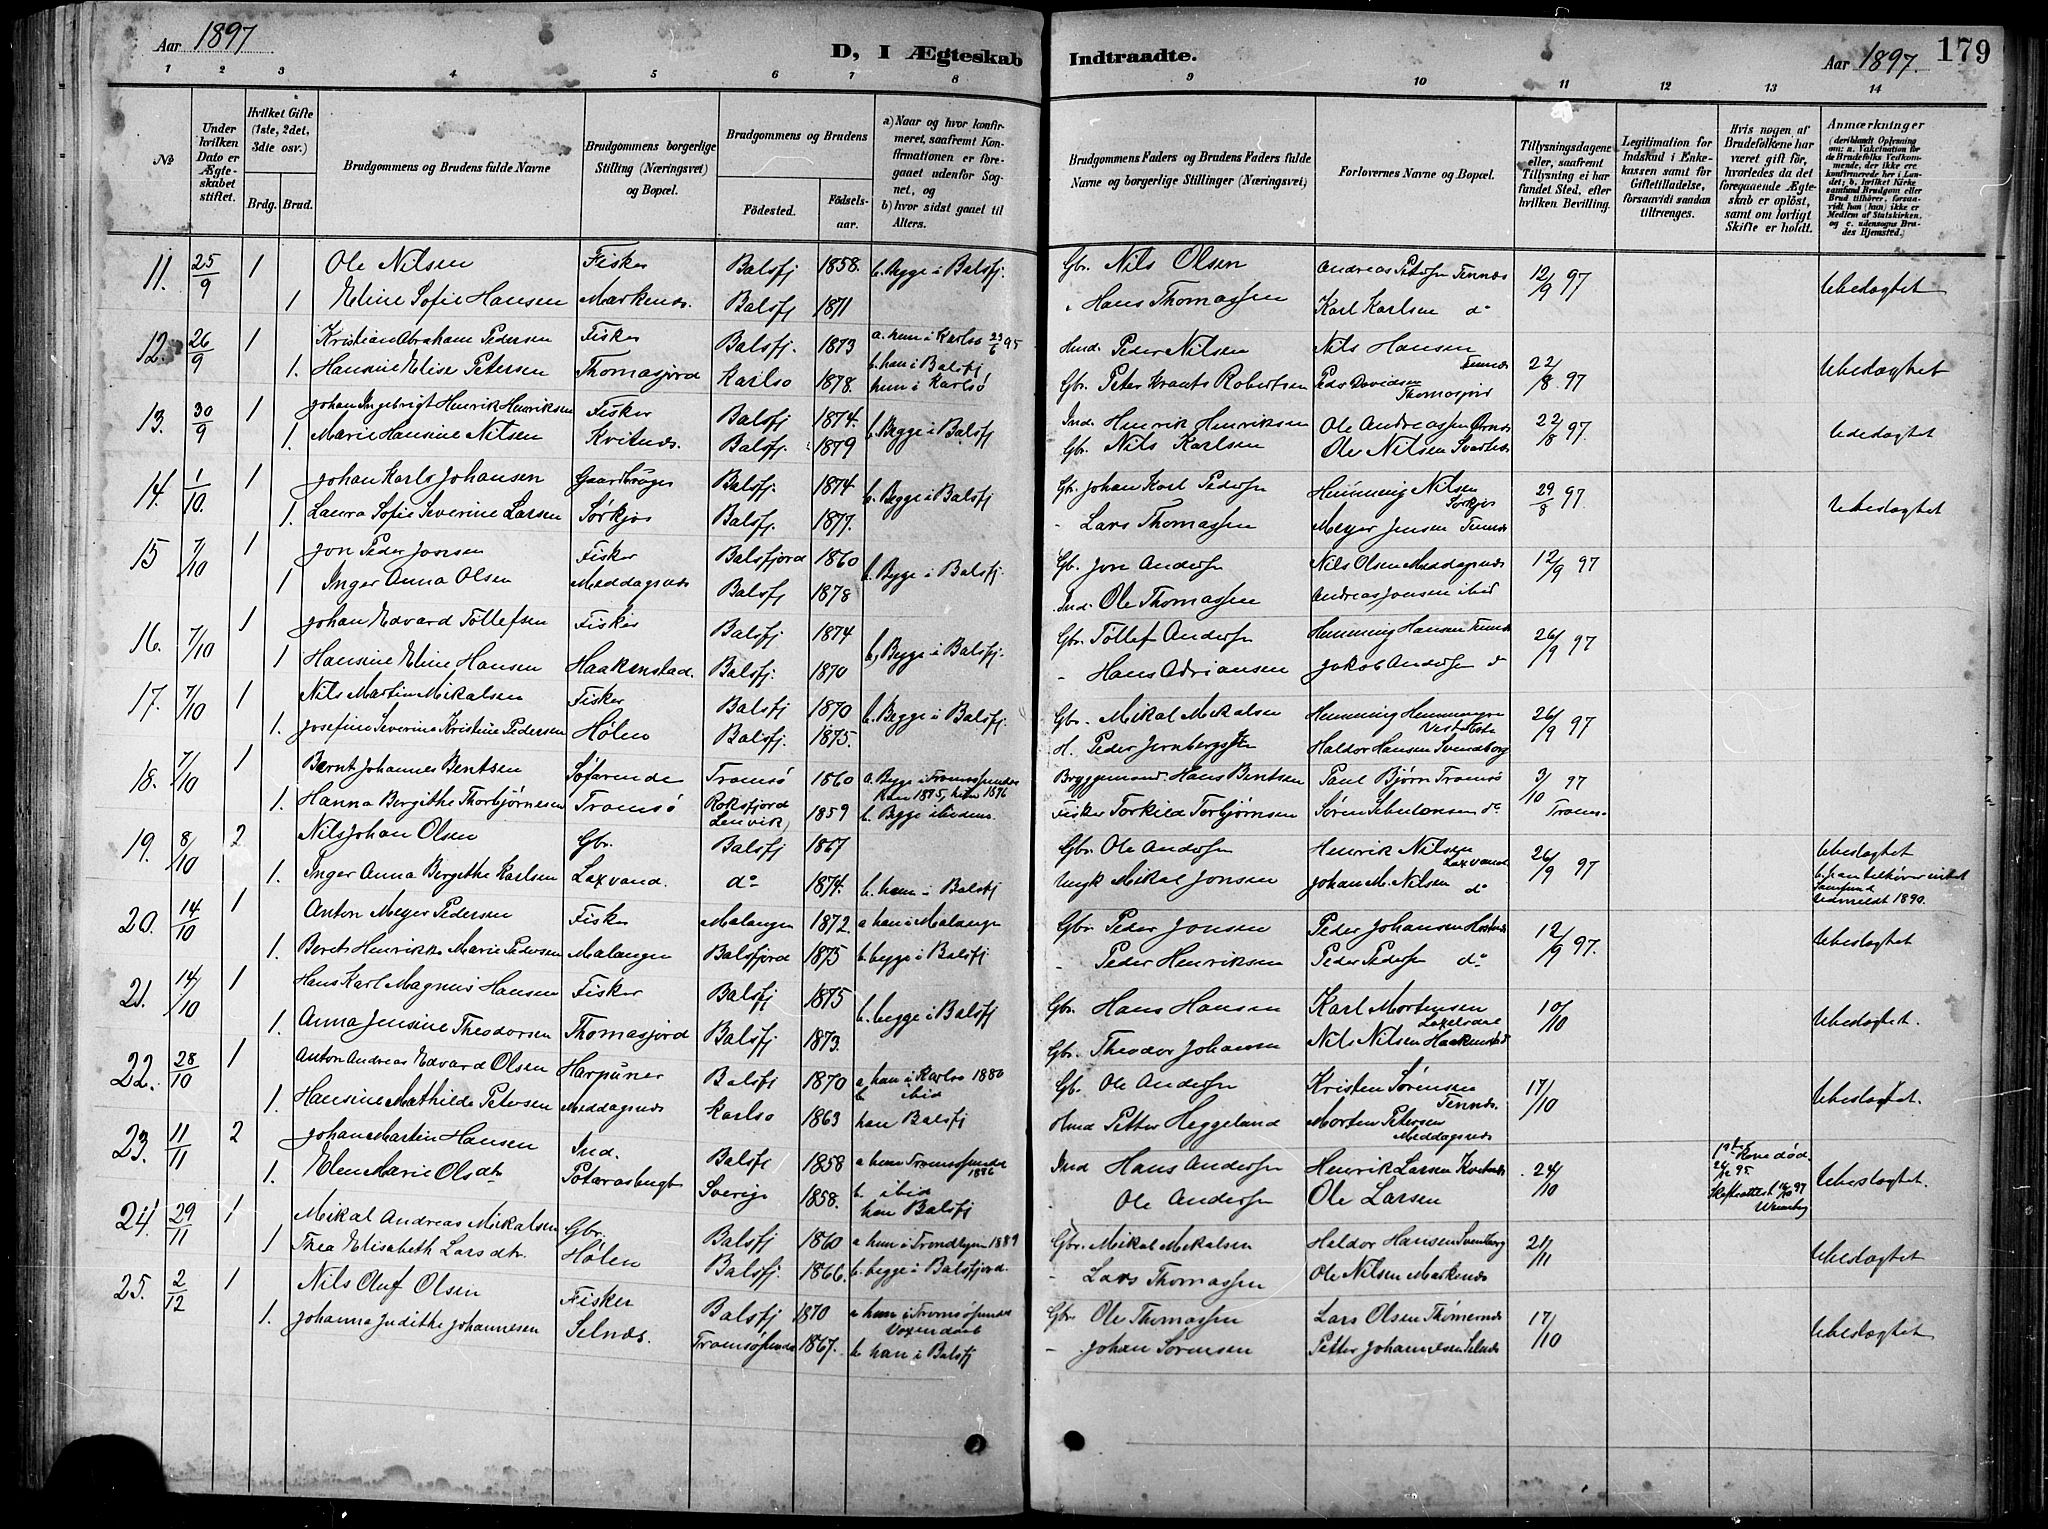 Aar 1897
D, I Ægteskab
Indtraadte.
Aar 1897.
179
1 2 3 4 5 6 7 8 9 10 11 12 13 14
No
Under hvilken Dato er Ægteskabet stiftet.
Hvilket Gifte (1ste, 2det, 3die osv.)
Brdg. Brud.
Brudgommens og Brudens fulde Navne
Brudgommens borgerlige Stilling (Næringsvei) og Bopæl.
Brudgommens og Brudens
Fødested.
Fødselsaar.
a) Naar og hvor konfirmeret, saafremt Konfirmationen er foregaaet udenfor Sognet, og
b) hvor sidst gaaet til Alters.
Brudgommens Faders og Brudens Faders fulde Navne og borgerlige Stillinger (Næringsvei)
Forlovernes Navne og Bopæl.
Tillysningsdagene eller, saafremt Tillysning ei har fundet Sted, efter hvilken Bevilling.
Legitimation for Indskud i Enkekassen samt for Giftetilladelse, forsaavidt saadan tiltrænges.
Hvis nogen af Brudefolkene har været gift før, hvorledes da det foregaaende Ægteskab er opløst, samt om lovligt Skifte er holdt.
Anmærkninger (deriblandt Oplysning om: a. Vakcination for de Brudefolks Vedkommende, der ikke ere konfirmerede her i Landet; b. hvilket Kirkesamfund Brudgom eller Brud tilhører, forsaavidt han (hun) ikke er Medlem af Statskirken, og c. udensogns Brudes Hjemsted.)
11. 25/9 1 Ole Nilsen Fisker Balsfj. 1858. b. Begge i Balsfj. Gbr. Nils Olsen Andreas Petersen Tennæs 12/9 97 Ubeslagtet
1 Eline Sofie Hansen Markenæs. Balsfj 1871 " Hans Thomassen Karl Karlsen do
12. 26/9 1 Kristian Abraham Pedersen Fisker Balsfj. 1873 a. hun i Karlsø 23/6 95 Hmd. Peder Nilsen Nils Hansen Tennæs 22/8 97 Ubeslægtet
1. Hansine Elise Petersen Thomasjord Karlsø 1878. b. han i Balsfj hun i Karlsø Gbr. Peter Krants Robertsen Peder Davidsen Thomasjord
13. 30/9 1 Johan Ingebrigt Henrik Henriksen Fisker Balsfj 1874. b. Begge i Balsfj Ind. Henrik Henriksen Ole Andreassen Ørnæs 22/8 97. Ubeslagtet
1. Marie Hansine Nilsen Kvitnæs. Balsfj. 1879 Gbr. Nils Karlsen Ole Nilsen Svartnæs
14. 1/10. 1 Johan Karls Johansen Gaardbruger Balsfj. 1874 b. Begge i Balsfj Gb. Johan Karl Pedersen Hemming Nilsen Sørkjos 29/8 97. Ubeslagtet
1. Laura Sofie Severine Larsen Sørkjos Balsfj. 1877. - Lars Thomassen Meyer Jensen Tennæs
15 7/10 1 Jon Peder Jonsen Fisker Balsfjord 1860 b. Begge i Balsfj. Gb. Jon Andersen Nils Olsen Meddagsnæs 12/9 97
1 Inger Anna Olsen Meddagsnæs Balsfj 1878 Ind. Ole Thomassen Andreas Jonsen ibid
16. 7/10 1 Johan Edvard Tollefsen Fisker Balsfj. 1874 b. Begge i Balsfj. Gbr. Tollef Andersen Hemming Hansen Tennæs 26/9 97
1 Hansine Eline Hansen Haakenstad. Balsfj. 1870 - Hans Adriansen Jakob Andersen d
17. 7/10 1 Nils Martin Mikalsen Fisker Balsfj 1870 b. Begge i Balsfj. Gbr. Mikal Mikalsen Hemming Hemmingsen 26/9 97
1. Josefine Severine Kristine Pedersen Hølen Balsfj. 1875. H. Peder Jernbergsen Haldor Hansen Svendborg
18. 7/10 1 Bernt Johannes Bentsen Søfarende Tromsø 1860 a. Begge i Tromsøsundet han 1875, hun 1876 Bryggemand. Hans Bentsen Paul Bjørn Tromsø 3/10 97
1. Hanna Bergithe Thorbjørnesen Tromsø Roksfjord Lenvik) 1859 b. Begge ibidem. Fisker Torkild Torbjørnsen Søren do Troms-
19. 8/10 2 Nils Johan Olsen Gbr. Balsfj 1867 Gbr. Ole Andersen Henrik Nilsen Laxvand 26/9 97 Ubeslagtet
1. Inger Anna Bergithe Karlsen Laxvand. do 1874. b. hun i Balsfj Ungk Mikal Jonsen Johan M. Nilsen do Samfund Udmeldt 1890.
20. 14/10 1 Anton Meyer Pedersen Fisker Malangen 1872. a han i Malangen Gbr. Peder Jonsen Peder Johansen 12/9 97. Ubeslagtet
1. Beret Henrikke Marie Pedersen Malangen Balsfjord 1875 b. begge i Balsfj - Peder Henriksen Peder Pedersen do
21. 14/10 1 Hans Karl Magnus Hansen Fisker Balsfj 1875 b. begge i Balsfj Gbr. Hans Hansen Karl Mortensen 10/10 Ubeslagtet.
1. Anna Jensine Theodorsen Thomasjord Balsfj 1873. Gbr. Theodor Johansen Nils Nilsen Haakenstad
22. 28/10 1 Anton Andreas Edvard Olsen Harpuner Balsfj 1870 a. hun i Karlsø 1880 b ibid Gb. Ole Andersen Kristen Sørensen Tennæs. 17/10 Ubeslagtet.
1. Hansine Mathilde Petersen Meddagsnæs Karlsø 1863 han Balsfj Hmd Petter Heggeland Morten Petersen Meddagsnæs
23. 11/11 2 Johan Martin Hansen Ind. Balsfj 1858 a hun Tromsøsundet 1876 Ind Hans Andersen Henrik Larsen Kvitnæs 24/10 1ste Kone død 95 Ubeslagtet.
1. Elen Marie Olsdt. Sverige 1858. b. ibid han Balsfj Ole Andersen Ole Larsen
24. 29/11 1 Mikal Andreas Mikalsen Gbr. Balsfj 1860 a hun i Trondhjem 1889 Gbr. Mikal Mikalsen Haldor Hansen Svendborg 21/11 Ubeslagtet
1 Thea Elisabeth Larsdtr. Hølen Balsfj. 1866. b. begge i Balsfjord. - Lars Thomassen Ole Nilsen Markenæs
25. 2/12 1 Nils Oluf Olsen Fisker Balsfj 1870 a hun i Tromsøsundet Gbr. Ole Thomassen Lars Olsen 17/10 Ubeslagtet
1. Johanna Judithe Johannesen Selnæs. Tromsøsundet 1867. b han i Balsfj - Johan Sørensen Petter Johannesen Selnæs